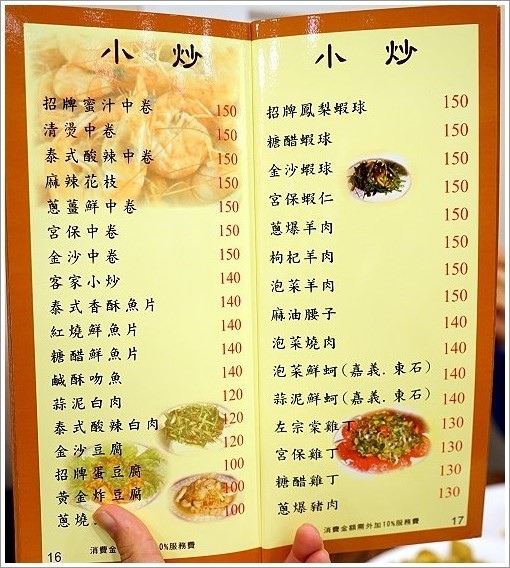 小炒
招牌蜜汁中卷 150
清燙中卷 150
泰式酸辣中卷 150
麻辣花枝 150
蔥薑鮮中卷 150
宮保中卷 150
金沙中卷 150
客家小炒 140
泰式香酥魚片 140
紅燒鮮魚片 140
糖醋鮮魚片 140
鹹酥吻魚 140
蒜泥白肉 120
泰式酸辣白肉 120
金沙豆腐 120
招牌蛋豆腐 100
黃金炸豆腐 100
蔥燒 100
16
消費金 10%服務費
小炒
招牌鳳梨蝦球 150
糖醋蝦球 150
金沙蝦球 150
宮保蝦仁 150
蔥爆羊肉 150
枸杞羊肉 150
泡菜羊肉 150
麻油腰子 150
泡菜燒肉 140
泡菜鮮蚵(嘉義.東石) 140
蒜泥鮮蚵(嘉義.東石) 140
左宗棠雞丁 130
宮保雞丁 130
糖醋雞丁 130
蔥爆豬肉 130
消費金額需外加10%服務費
17